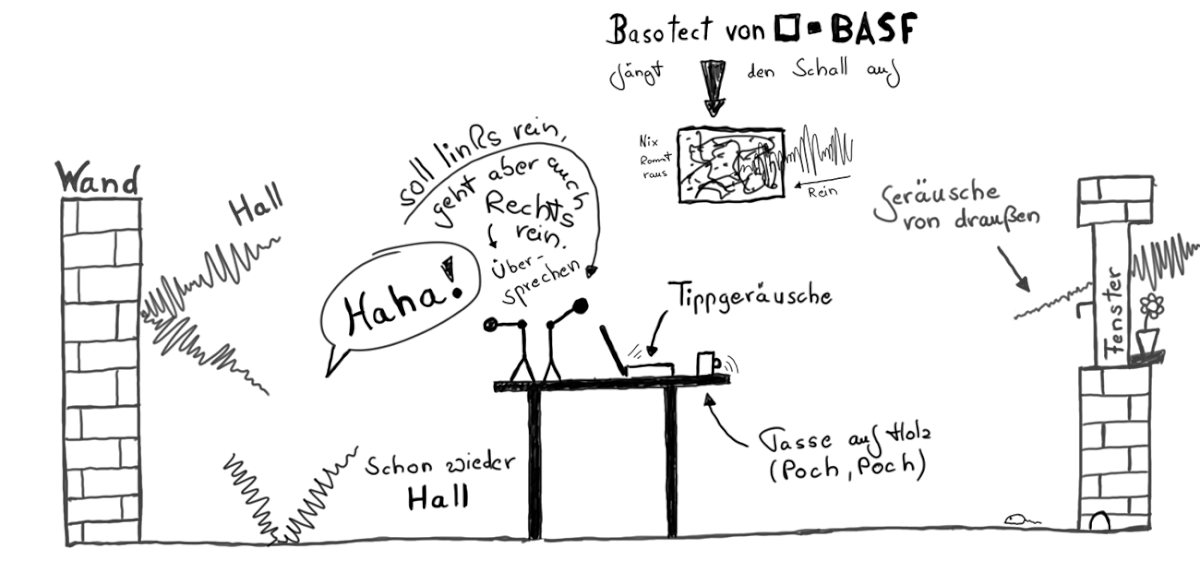 Basotect von BASF
fängt den Schall auf
Nix
kommt
raus
Rein
Wand
Hall
soll links rein,
geht aber auch
Rechts
rein.
Über-
sprechen
Haha!
Geräusche
von draußen
Fenster
Tippgeräusche
Tasse auf Holz
(Poch, Poch)
Schon wieder
Hall